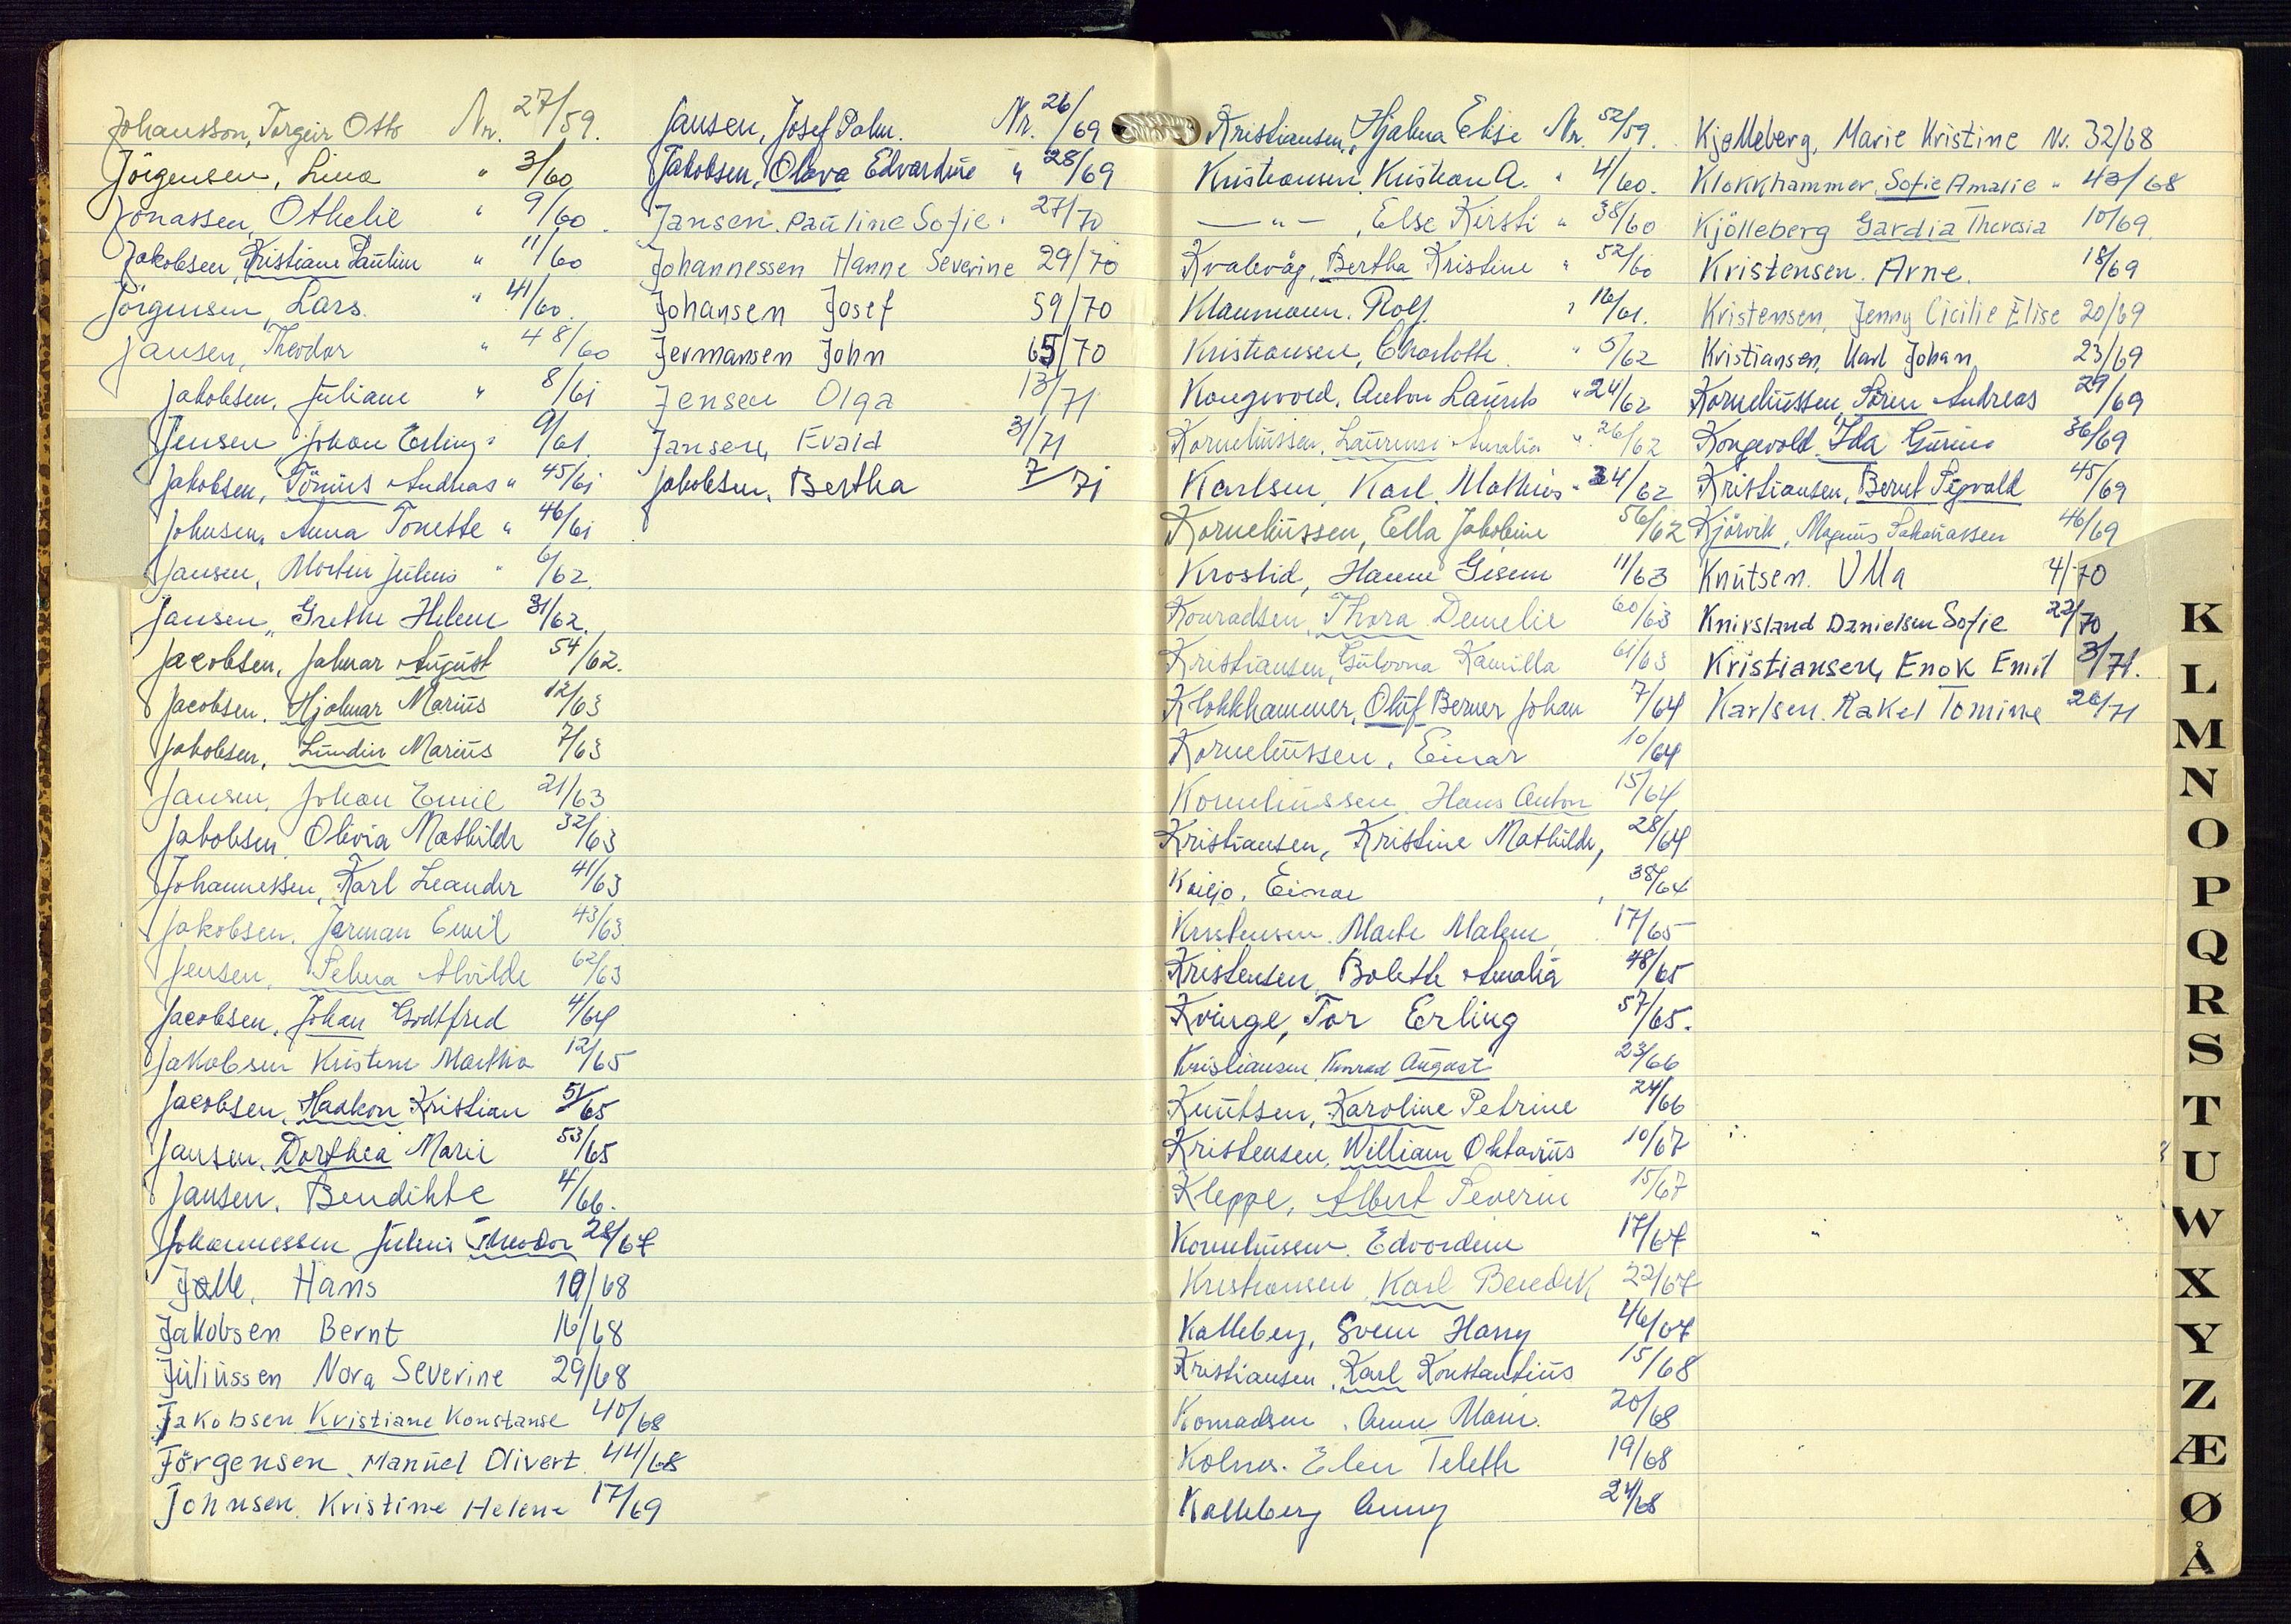 Johansson, Torgeir Otto Nr. 27/59.
Jörgensen, Lina " 3/60
Jonassen, Othelie " 9/60.
Jakobsen, Kristiane Pauline " 11/60
Jörgensen, Lars. " 41/60.
Jansen, Theodor " 48/60
Jakobsen, Juliane " 8/61
Jensen, Johan Erling " 9/61.
Jakobsen, Tönnes Andreas " 45/61
Johnsen, Anna Tonette " 46/61
Jansen, Morten Julius " 6/62.
Jansen, Grethe Helene 31/62.
Jacobsen, Jalmar August 54/62.
Jacobsen, Hjalmar Marius 12/63
Jakobsen, Lundin Marius 7/63
Jansen, Johan Emil 21/63
Jakobsen, Olivia Mathilde 32/63
Johannessen, Karl Leander 41/63
Jakobsen, Jerman Emil 43/63
Jensen, Selma Alvilde 62/63
Jacobsen, Johan Godtfred 4/64
Jakobsen Kristine Martha 12/65
Jacobsen, Haakon Kristian 51/65
Jansen, Dorthea Marie 53/65
Jansen, Bendikte 4/66.
Johannessen Julius Theodor 28/67
Jølle, Hans 10/68
Jakobsen Bernt 16/68
Juliussen Nora Severine 29/68
Jakobsen Kristiane Konstanse 40/68
Jörgensen, Manuel Olivert. 44/68
Johnsen. Kristine Helene 17/69
Jansen, Josef Palm. Nr. 26/69
Jakobsen, Olava Edvardine " 28/69
Jansen. Pauline Sofie. " 27/70
Johannessen Hanne Severine 29/70
Johansen Josef 59/70
Jermansen John 65/70
Jensen Olga 13/71
Jansen, Evald 31/71
Jakobsen, Bertha 7/71
Kristiansen, Hjalma Elise Nr. 52/59.
Kristiansen, Kristian A. " 4/60.
— " — , Else Kirsti " 38/60
Kvalevåg, Bertha Kristine " 52/60
Klaumann. Rolf. " 16/61.
Kristiansen, Charlotte. " 5/62
Kongevold, Anton Laurits " 24/62
Korneliussen, Laurense Amalia " 26/62
Karlsen, Karl Mathias " 34/62
Korneliussen, Ella Jakobine 56/62
Krostid, Hanne Gesine 11/63
Konradsen, Thora Demelie 60/63
Kristiansen, Gulorna Kamilla 61/63
Klokkhammer, Oluf Berner Johan 7/64
Korneliussen, Einar 10/64
Korneliussen, Hans Anton 15/64
Kristiansen, Kristine Mathilde, 28/64
Einar , 38/64
Kristensen. Marte Malene, 17/65
Kristensen, Bolette Amalia 48/65
Kvinge, Tor Erling 57/65.
Kristiansen, Konrad August 23/66
Knutsen, Karoline Petrine 24/66
Kristensen, William Oktavius 10/67
Kleppe, Albert Severin 15/67
Korneliussen. Edvardine 17/67
Kristiansen, Karl Benedik 22/67
Kalleberg, Svein Harry 46/67
Kristiansen, Karl Konstantius 15/68
Konradsen, Anne Marie. 20/68
Kolnes. Elen Teleth 19/68
Kalleberg Anny 24/68
Kjølleberg, Marie Kristine Nr. 32/68
Klokkhammer, Sofie Amalie " 43/68
Kjölleberg Gardia Theresia 10/69.
Kristensen. Arne. 18/69
Kristensen, Jenny Cicilie Elise 20/69
Kristiansen, Karl Johan 23/69
Korneliussen, Sören Andreas 29/69
Kongevold, Ida Gurine 36/69
Kristiansen, Bernt Sigvald 45/69
Kjörvik, Magnus Sakariassen 46/69
Knutsen. Ulla 4/70
Knivsland Danielsen Sofie 22/70
Kristiansen, Enok Emil 3/71.
Karlsen. Rakel Tomine 26/71
K
L
M
N
O
P
Q
R
S
T
U
W
X
Y
Z
Æ
Ø
Å